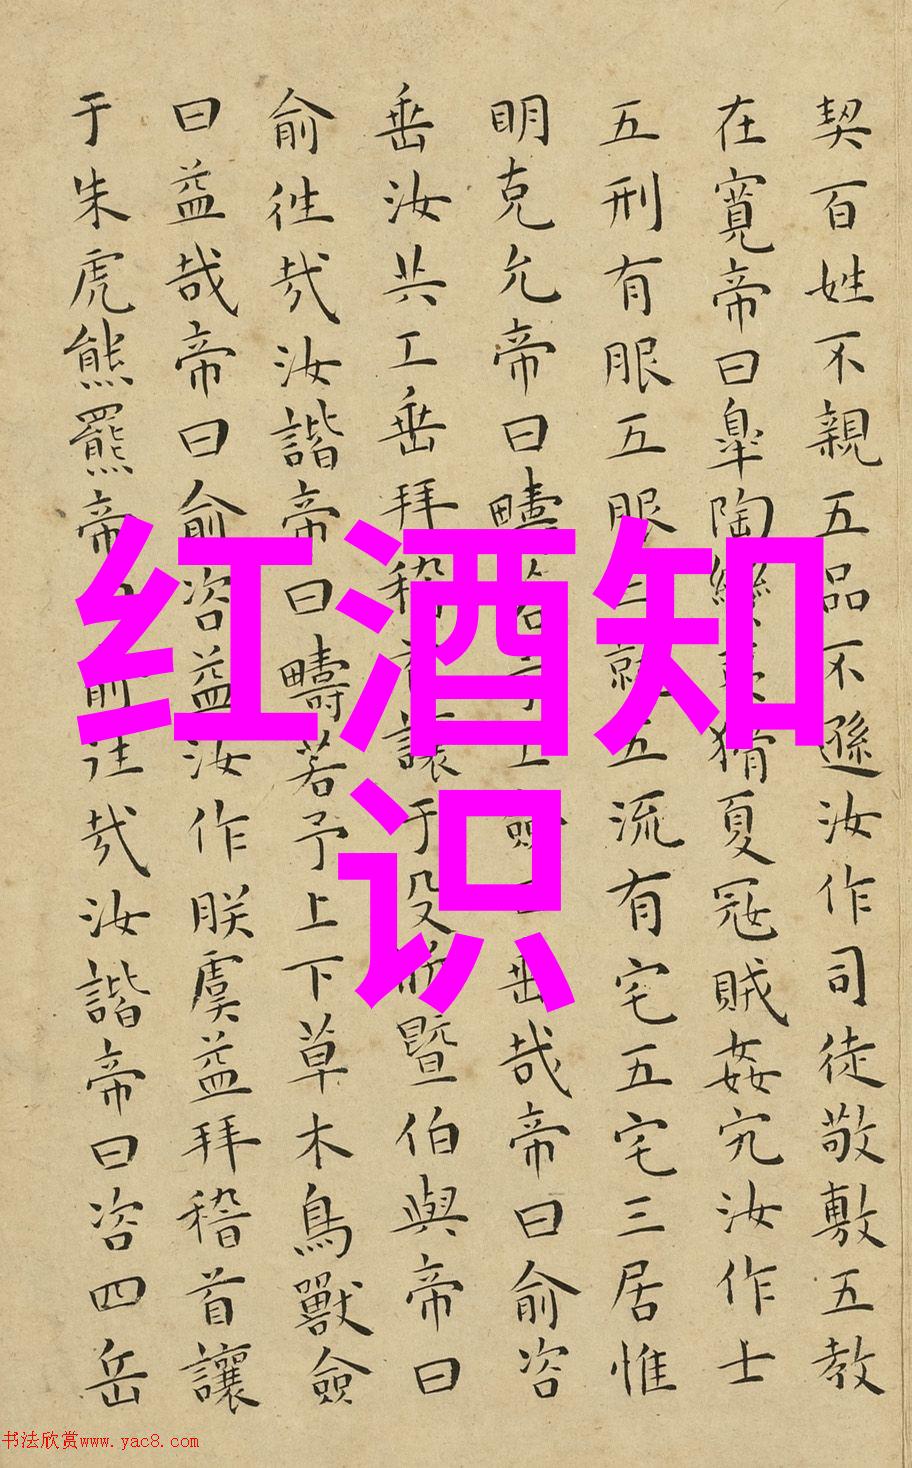 契百姓不親五品不遜汝作司徒敬敷五教
在寬帝曰皐陶蠻夷猾夏冦賊姦宄汝作士
五刑有服五服三就五流有宅五宅三居惟
明克允帝曰疇若予工僉曰垂哉帝曰俞咨
垂汝共工垂拜稽首讓于殳斨暨伯與帝曰
俞往哉汝諧帝曰疇若予上下草木鳥獸僉
曰益哉帝曰俞咨益汝作朕虞益拜稽首讓
于朱虎熊羆帝曰俞往哉汝諧帝曰咨四岳
红酒知
识
书法欣赏www.yac8.com